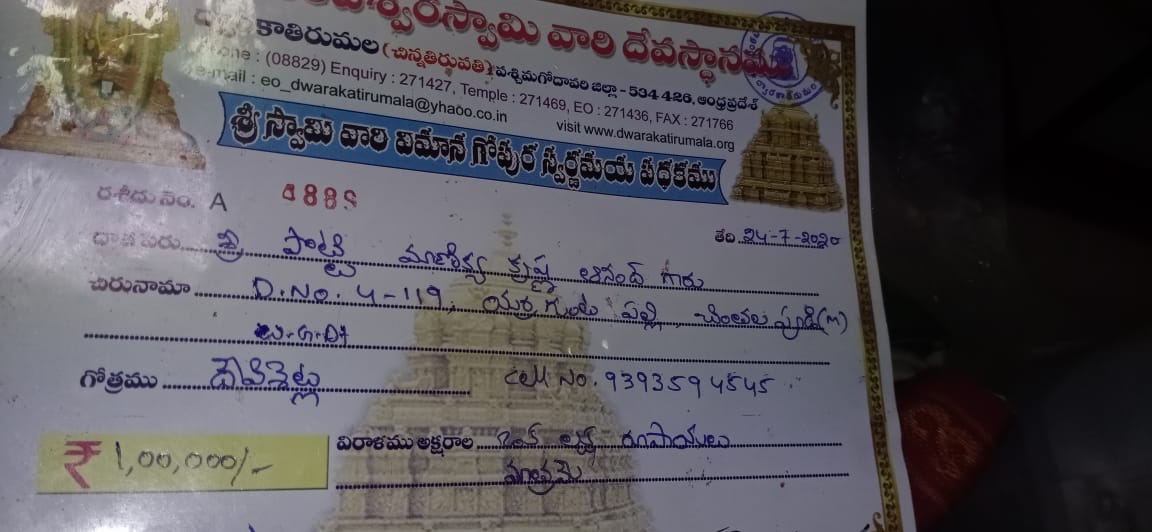 శ్వరస్వామి వారి దేవస్థానము
కాతిరుమల (చిన్నతిరుపతి) పశ్చిమగోదావరి జిల్లా - 534 426, ఆంధ్రప్రదేశ్
Phone : (08829) Enquiry : 271427, Temple : 271469, EO : 271436, FAX : 271766
e-mail : eo_dwarakatirumala@yhaoo.co.in visit www.dwarakatirumala.org
శ్రీ స్వామి వారి విమాన గోపుర స్వర్ణమయ పథకము
రశీదు నెం. A
తేది 24-7-2020
దాత పేరు శ్రీ పొట్టి మాణిక్య కృష్ణ ఆనంద్ గారు
చిరునామా D.No. 4-119, యర్రగుంట పల్లి, చింతల పూడి(m)
w.G.Dt
గోత్రము Cell No. 9393594545
₹ 1,00,000/- విరాళము అక్షరాల లక్ష రూపాయలు
మాత్రమే